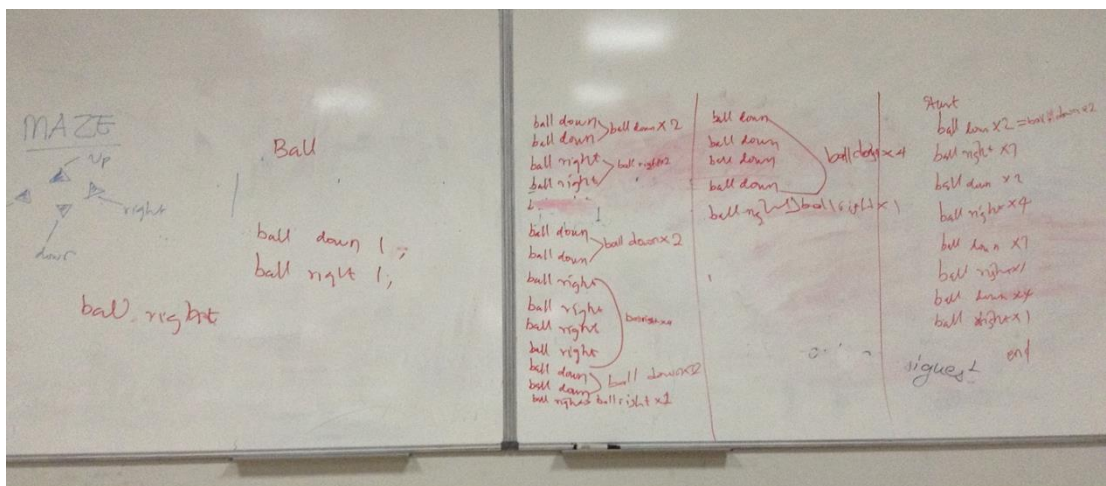 MAZE
up
right
down
Ball
ball down 1;
ball right 1;
ball right
ball down
ball down
ball down x 2
ball right
ball right
ball right x2
ball down
ball down
ball down x 2
ball right
ball right
ball right
ball right
ball right x4
ball down
ball down
ball down x2
ball right ball right x1
ball down
ball down
ball down
ball down
ball down x 4
ball right ball right x 1
Start
ball down x2 = ball down x2
ball right x2
ball down x2
ball right x4
ball down x2
ball right x1
ball down x4
ball right x1
end